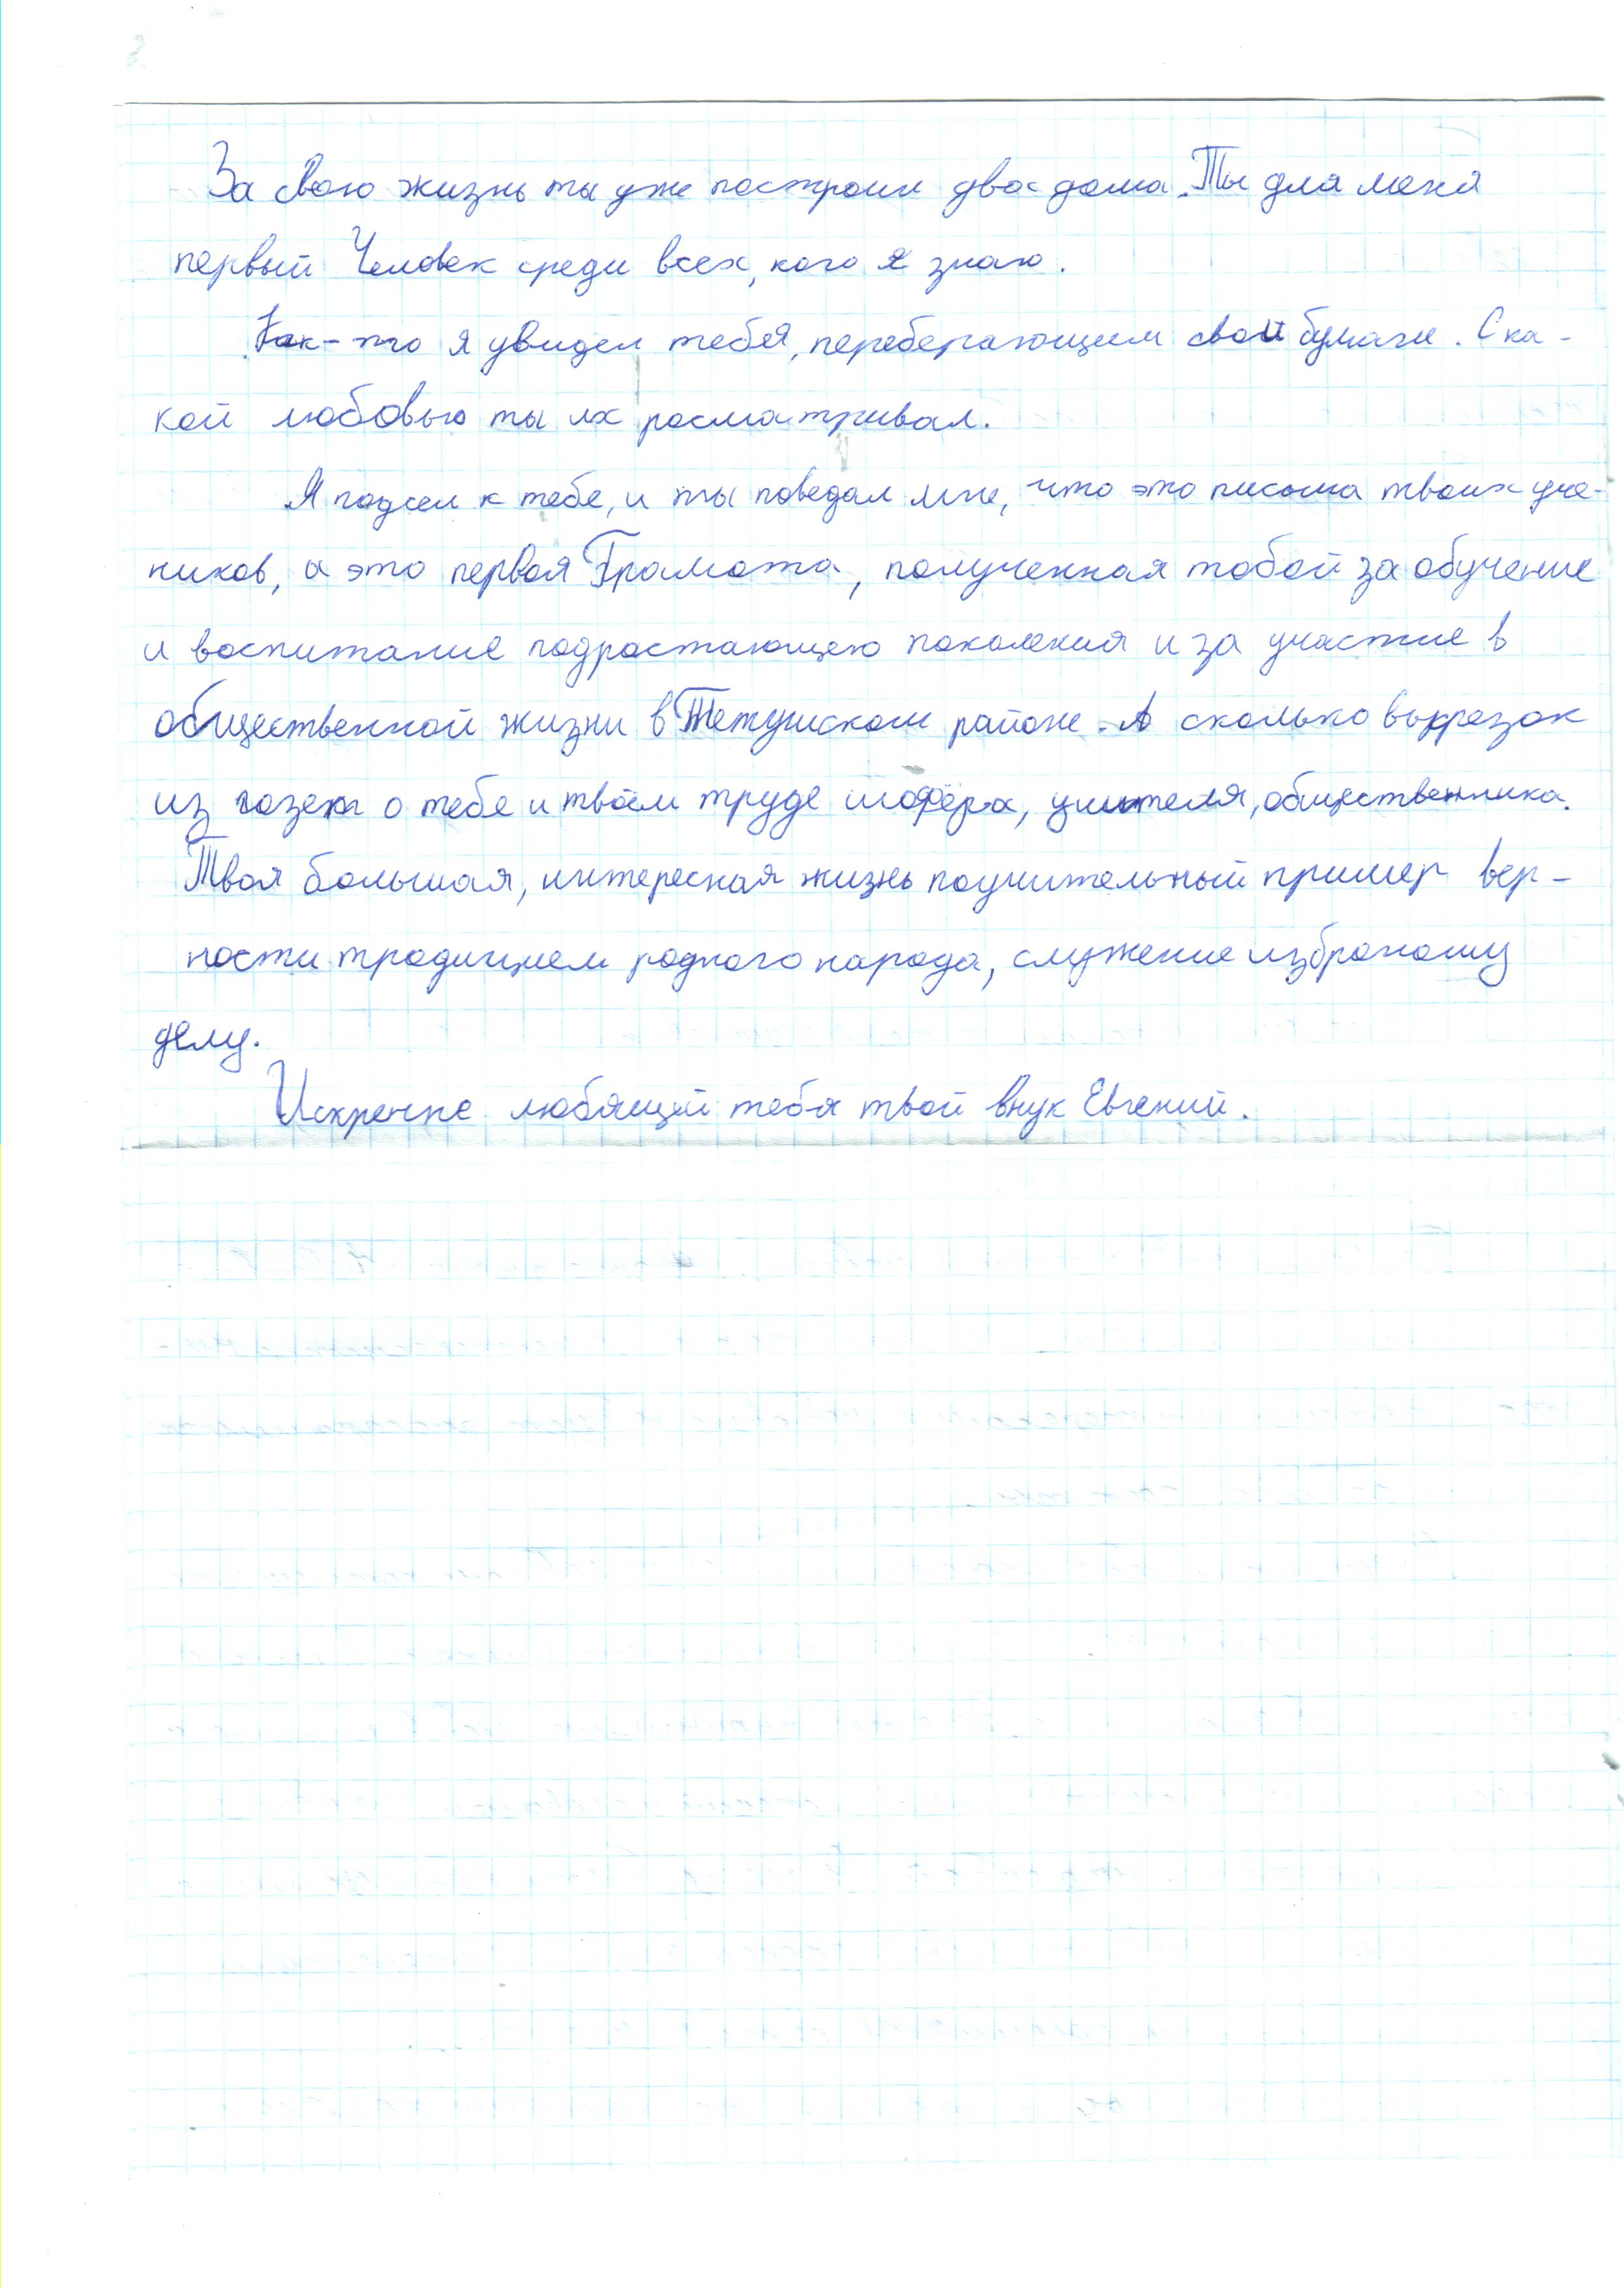 За свою жизнь ты уже построил два дома. Ты для меня
первый Человек среди всех, кого я знаю.
Как-то я увидел тебя, переберающим свои бумаги. С ка-
кой любовью ты их росматривал.
Я подсел к тебе, и ты поведал мне, что это письма твоих уче-
ников, а это первая Грамота, полученная тобой за обучение
и воспитание подростающего поколения и за участие в
общественной жизни в Тетушском районе. А сколько вырезок
из газет о тебе и твоём труде шофёра, учителя, общественника.
Твоя большая, интересная жизнь поучительный пример вер-
ности традициям родного народа, служение избраному
делу.
Искренне любящий тебя твой внук Евгений.